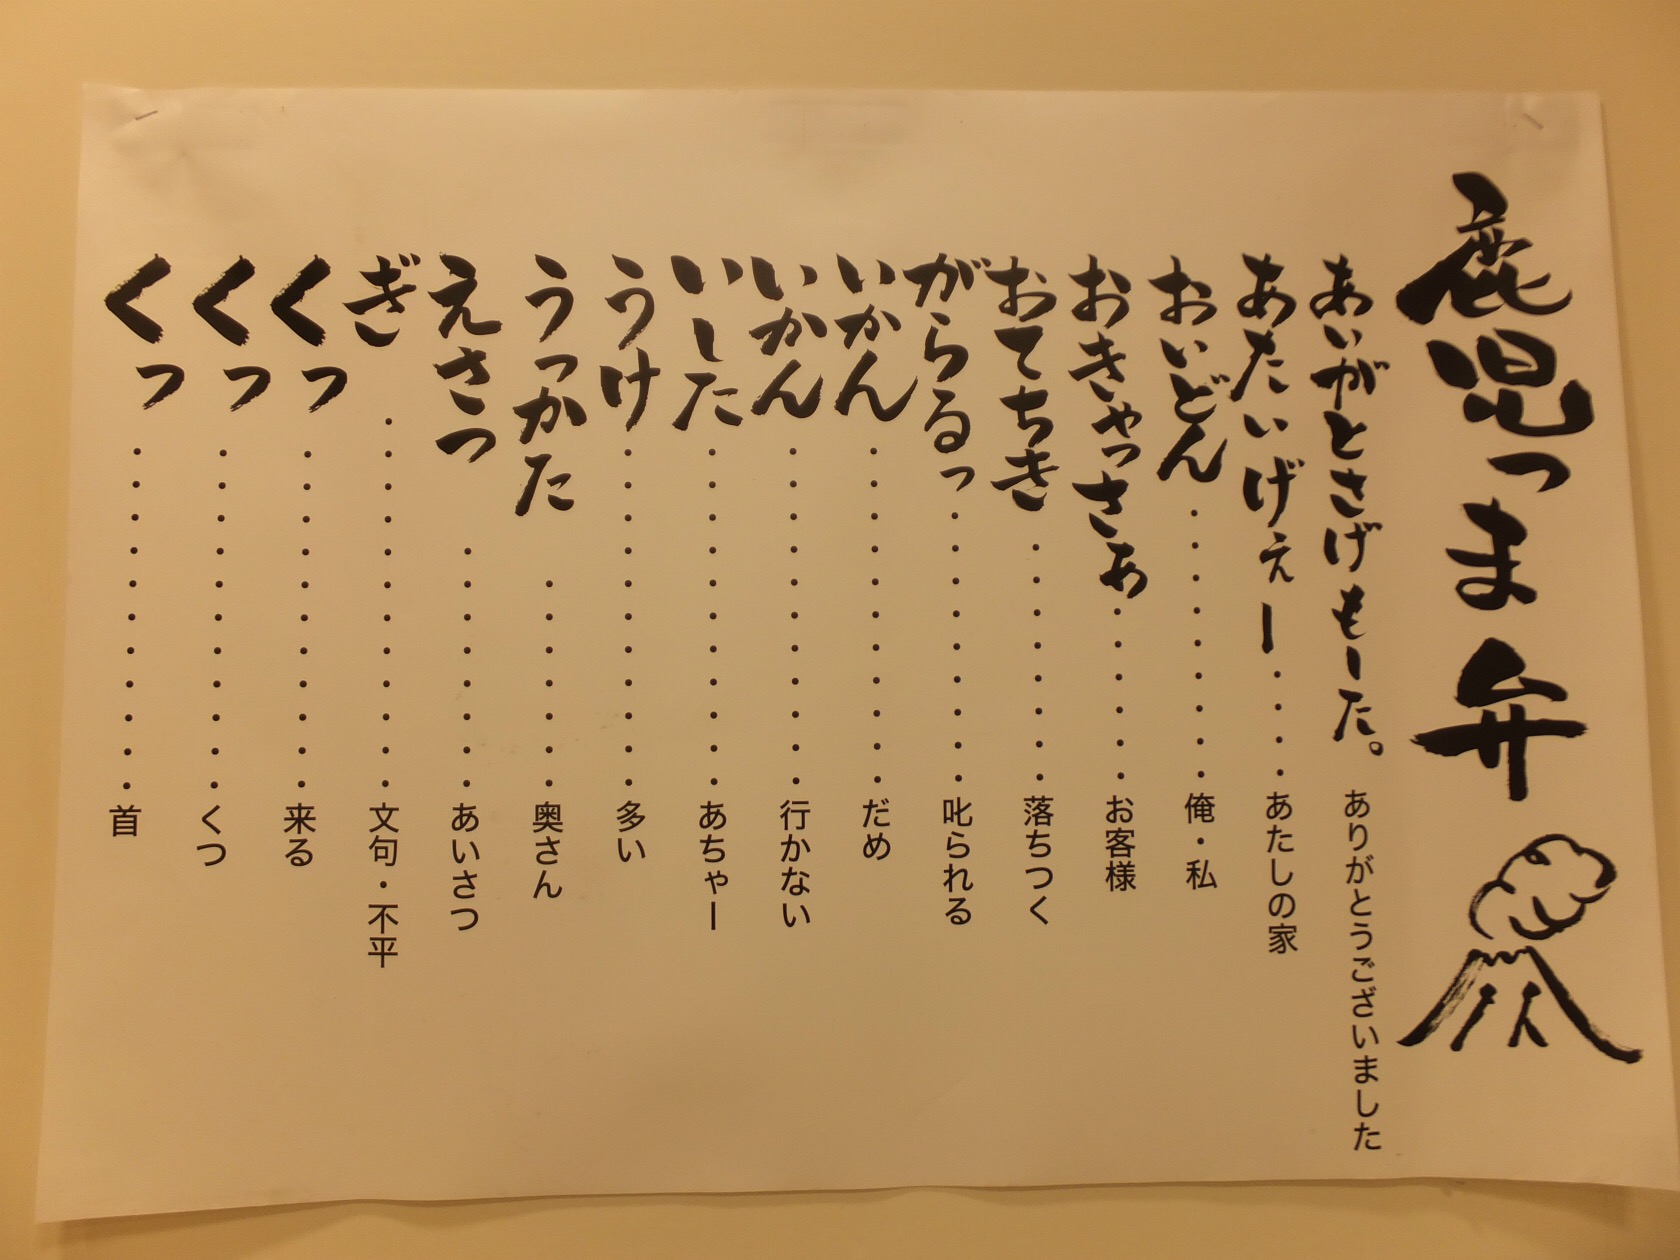 鹿児っま弁
あいがとさげもーた。ありがとうございました
あたいげぇー・・・・あたしの家
おいどん・・・・・・・・・俺・私
おきゃっさぁ・・・・・・お客様
おてちき・・・・・・・・落ちつく
がらるっ・・・・・・・・・叱られる
いかん・・・・・・・・・・・だめ
いかん・・・・・・・・・・・行かない
いした・・・・・・・・・・・あちゃー
うけ・・・・・・・・・・・多い
うっかた・・・・・・・奥さん
えさつ・・・・・・・・あいさつ
ぎ・・・・・・・・・・・・文句・不平
くっ・・・・・・・・・・・来る
くっ・・・・・・・・・・・くつ
くっ・・・・・・・・・・・首